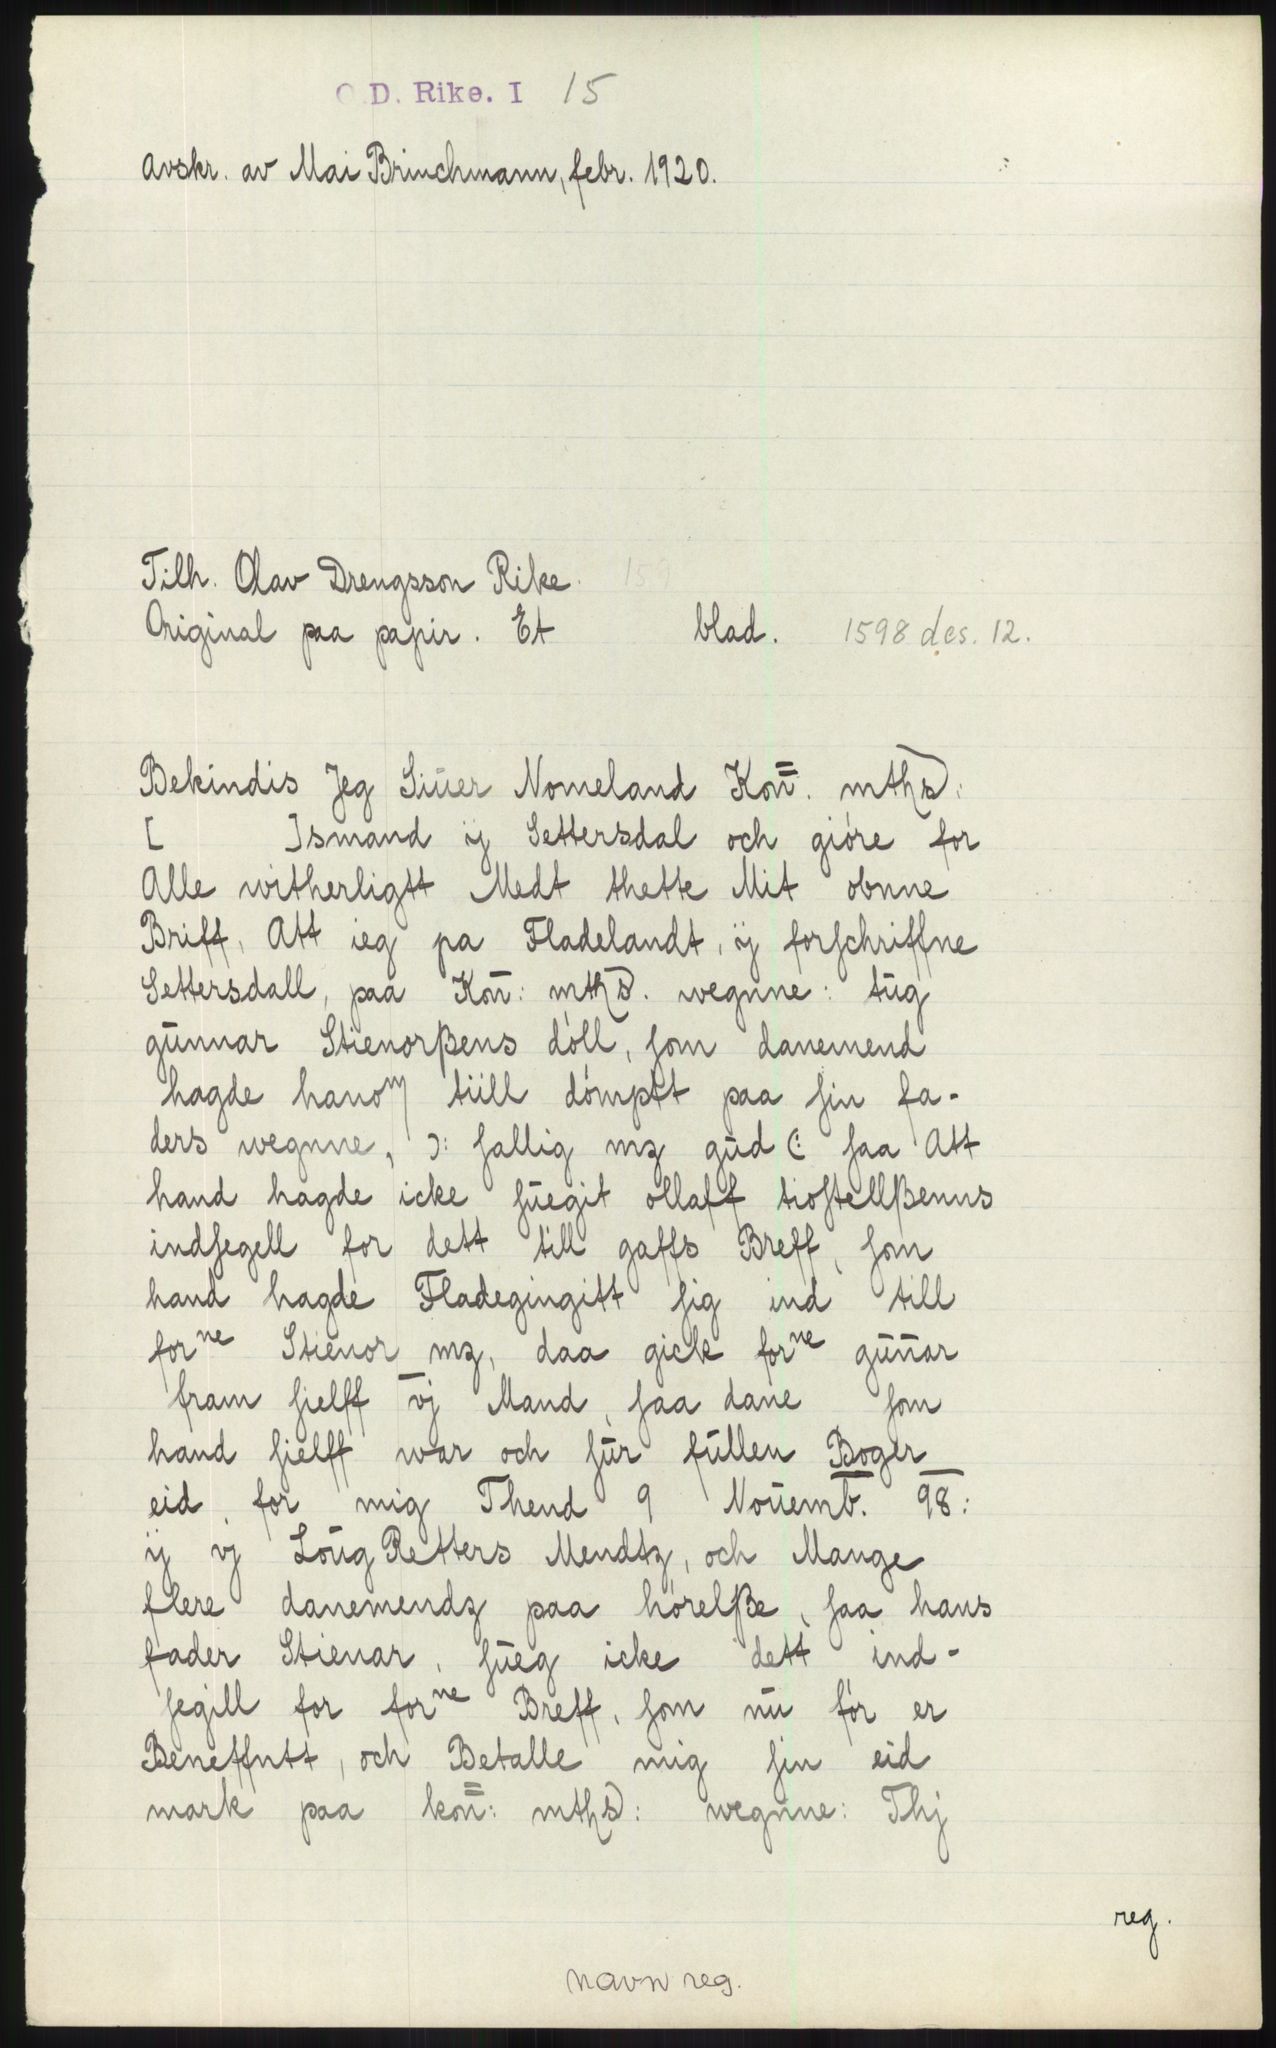 O.D. Rike. I 15
Avskr. av Mai Brinchmann, febr. 1920.
Tilh. Olav Drengsson Rike.
Original paa papir. Et blad. 1598 des. 12.
Bekindis Jeg Siŭer Nomeland Koñ. mths:
[ ]smand ij Settersdal och gióre for
Alle witherligtt Medt thette Mit obnne
Briff, Att ieg pa Fladelandt, ij forschriffne
Settersdall, paa Koñ: mths. wegnne: tŭg
gŭnnar Stienorßens dóll, som danemend
hagde hanom tiill dómptt paa sin fa-
ders wegnne, ɔ: sallig mz gŭd (: saa Att
hand hagde icke sŭegit ollaff tiostellßenns
indsegell for dett till gaffs Breff, som
hand hagde Fladegingitt sig ind till
forne Stienor mz, daa gick forne gŭnar
fram sielff vj Mand, saa dane som
hand sielff war och sŭr fŭllen Boger
eid, for mig Thend 9 Noŭemb. 98:
ij vj Loŭg Retters Mendtz, och Mange
flere danemendz paa hórelße, saa hans
fader Stienar, sŭeg icke dett ind-
segill for forne Breff, som nŭ fór er
Beneffntt, och Betalle mig sin eid
mark paa koñ: mths: wegnne: Thj
reg.
navn reg.